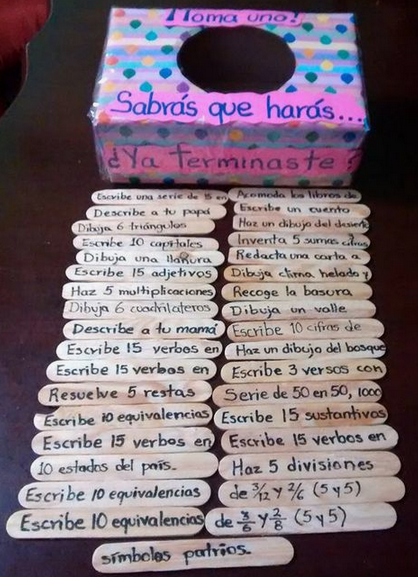 ¡Toma uno!
Sabrás que harás...
¿Ya terminaste?
Escribe una serie de 15 en
Acomoda los libros de
Describe a tu papá
Escribe un cuento
Dibuja 6 triángulos
Haz un dibujo del
Escribe 10 capitales
Inventa 5 sumas
Dibuja una llanura
Redacta una carta a
Escribe 15 adjetivos
Dibuja clima helado y
Haz 5 multiplicaciones
Recoge la basura
Dibuja 6 cuadrilateros
Dibuja un valle
Describe a tu mamá
Escribe 10 cifras de
Escribe 15 verbos en
Haz un dibujo del bosque
Escribe 15 verbos en
Escribe 3 versos con
Resuelve 5 restas
Serie de 50 en 50, 1000
Escribe 10 equivalencias
Escribe 15 sustantivos
Escribe 15 verbos en
Escribe 15 verbos en
10 estados del país.
Haz 5 divisiones
Escribe 10 equivalencias
de 3/12 y 2/6 (5 y 5)
Escribe 10 equivalencias
de 3/6 y 2/8 (5 y 5)
símbolos patrios.